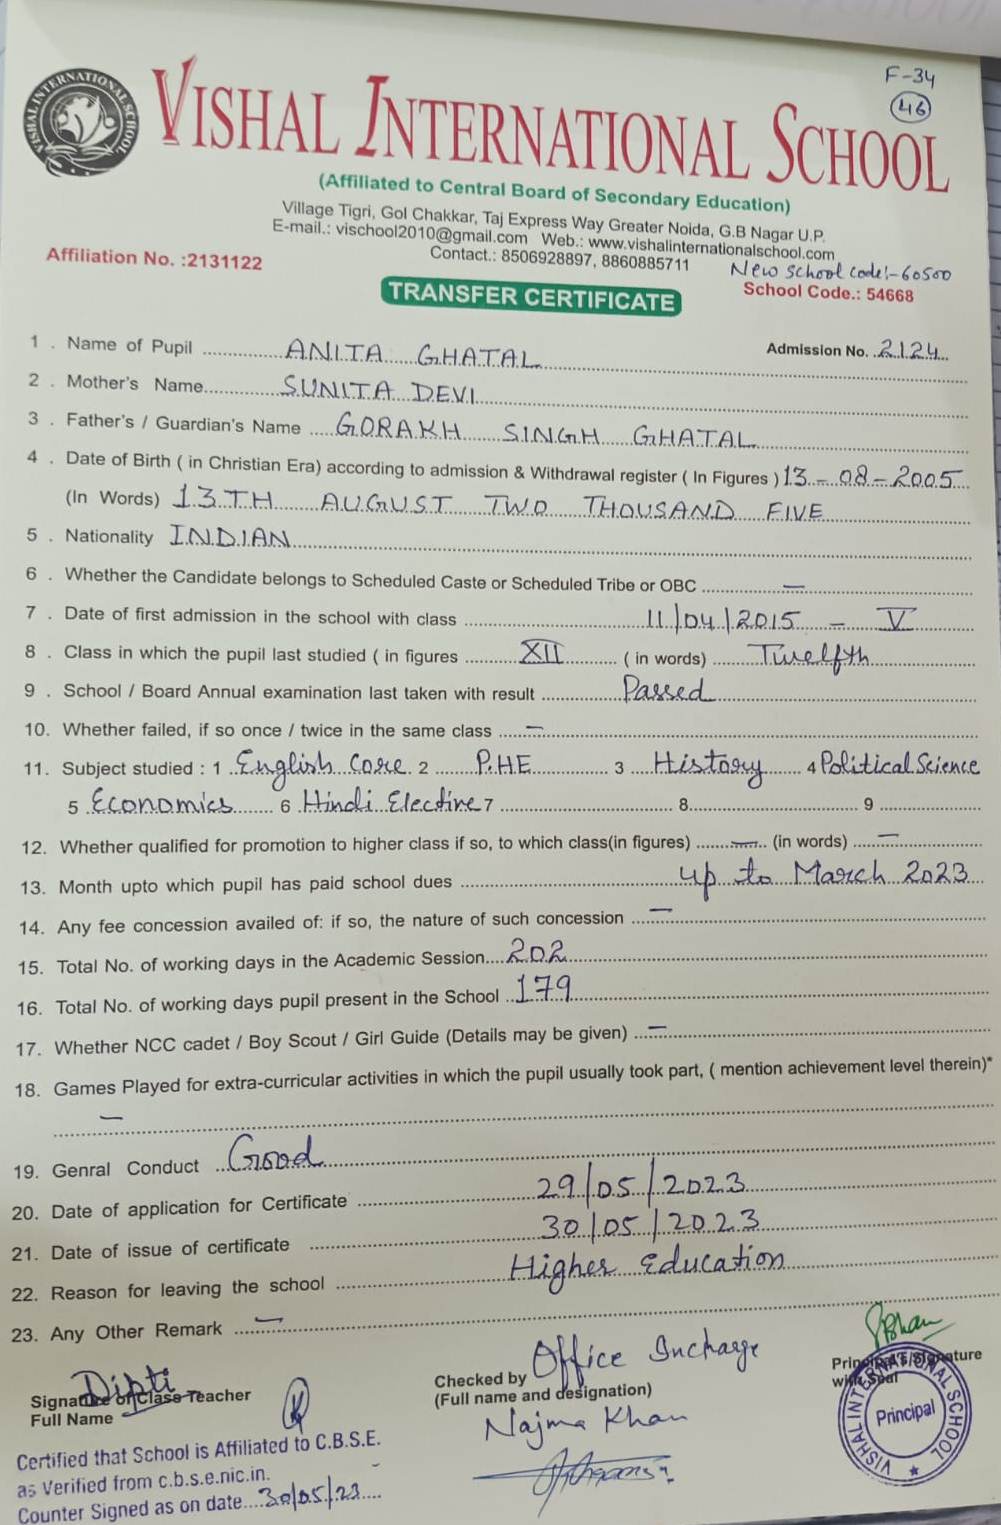 F-34
46
VISHAL INTERNATIONAL SCHOOL
VISHAL INTERNATIONAL SCHOOL
(Affiliated to Central Board of Secondary Education)
Village Tigri, Gol Chakkar, Taj Express Way Greater Noida, G.B Nagar U.P.
E-mail.: vischool2010@gmail.com Web.: www.vishalinternationalschool.com
Contact.: 8506928897, 8860885711
New School code:-60500
Affiliation No. :2131122 School Code.: 54668
TRANSFER CERTIFICATE
1 . Name of Pupil ANITA GHATAL Admission No. 2124
2 . Mother's Name SUNITA DEVI
3 . Father's / Guardian's Name GORAKH SINGH GHATAL
4 . Date of Birth ( in Christian Era) according to admission & Withdrawal register ( In Figures ) 13-08-2005
(In Words) 13TH AUGUST TWO THOUSAND FIVE
5 . Nationality INDIAN
6 . Whether the Candidate belongs to Scheduled Caste or Scheduled Tribe or OBC —
7 . Date of first admission in the school with class 11/04/2015 - V
8 . Class in which the pupil last studied ( in figures XII ( in words) Twelfth
9 . School / Board Annual examination last taken with result Passed
10. Whether failed, if so once / twice in the same class —
11. Subject studied : 1 English Core 2 P.HE 3 History 4 Political Science
5 Economics 6 Hindi Elective 7 8 9
12. Whether qualified for promotion to higher class if so, to which class(in figures) — (in words) —
13. Month upto which pupil has paid school dues up to March 2023
14. Any fee concession availed of: if so, the nature of such concession —
15. Total No. of working days in the Academic Session 202
16. Total No. of working days pupil present in the School 179
17. Whether NCC cadet / Boy Scout / Girl Guide (Details may be given) —
18. Games Played for extra-curricular activities in which the pupil usually took part, ( mention achievement level therein)*
—
19. Genral Conduct Good
20. Date of application for Certificate 29/05/2023
21. Date of issue of certificate 30/05/2023
22. Reason for leaving the school Higher Education
23. Any Other Remark —
Dipti
Signature of Class Teacher
Full Name
Checked by Office Incharge
(Full name and designation)
Najma Khan
Principal's Signature
with Seal
VISHAL INTERNATIONAL SCHOOL
Principal
Certified that School is Affiliated to C.B.S.E.
as Verified from c.b.s.e.nic.in.
Counter Signed as on date 30/05/23